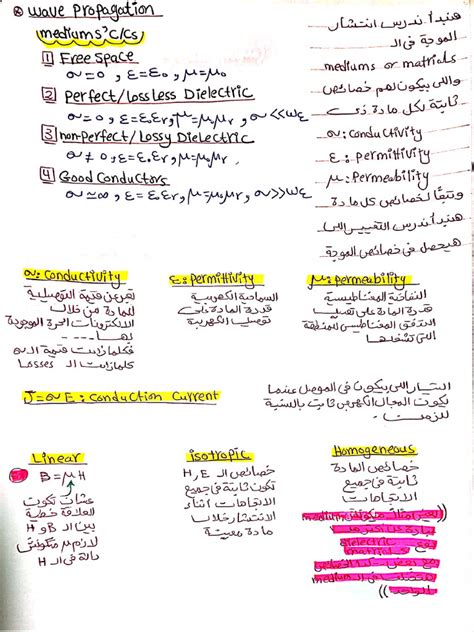 ⊗ wave propagation
mediums's C/Cs
1 Free Space
σ=0 , ε=ε₀ , μ=μ₀
2 Perfect/Lossless Dielectric
σ=0 , ε=ε₀εᵣ, μ=μ₀μᵣ , σ<<ωε
3 non-perfect/Lossy Dielectric
σ≠0 , ε=ε₀εᵣ, μ=μ₀μᵣ
4 Good Conductors
σ≈∞ , ε=ε₀εᵣ, μ=μ₀μᵣ , σ>>ωε
هنبدأ ندرس انتشار
الموجة في ال
mediums or matrials
واللي بيكون لهم خصائص
ثابتة لكل مادة زي
σ: conductivity
ε: permittivity
μ: permeability
وتبقا لخصائص كل مادة
هنبدأ ندرس التغيير اللي
هيحصل في خصائص الموجة
σ: conductivity
تعبر عن قيمة التوصيلية
للمادة من خلال
الالكترونات الحرة الموجودة
بها
فكلما زادت قيمة ال σ
كلما زادت ال Losses
ε: permittivity
السماحية الكهربية
قدرة المادة على
توصيل الكهربية
μ: permeability
النفاذية المغناطيسية
قدرة المادة على
التدفق المغناطيسي للمنطقة
التي تشغلها
J=σE: conduction Current
التيار اللي بيكون في الموصل عندما
يكون المجال الكهربي ثابت بالنسبة
للزمن
Linear
B=μH
عشان تكون
العلاقة خطية
بين ال B و H
لازم μ متكونش
دالة في ال H
isotropic
خصائص ال H, E
تكون ثابتة في جميع
الاتجاهات أثناء
الانتشار خلال
مادة معينة
Homogeneous
خصائص المادة
ثابتة في جميع
الاتجاهات
medium
dielectric
matrials
مع بعض
medium
الواحد ))